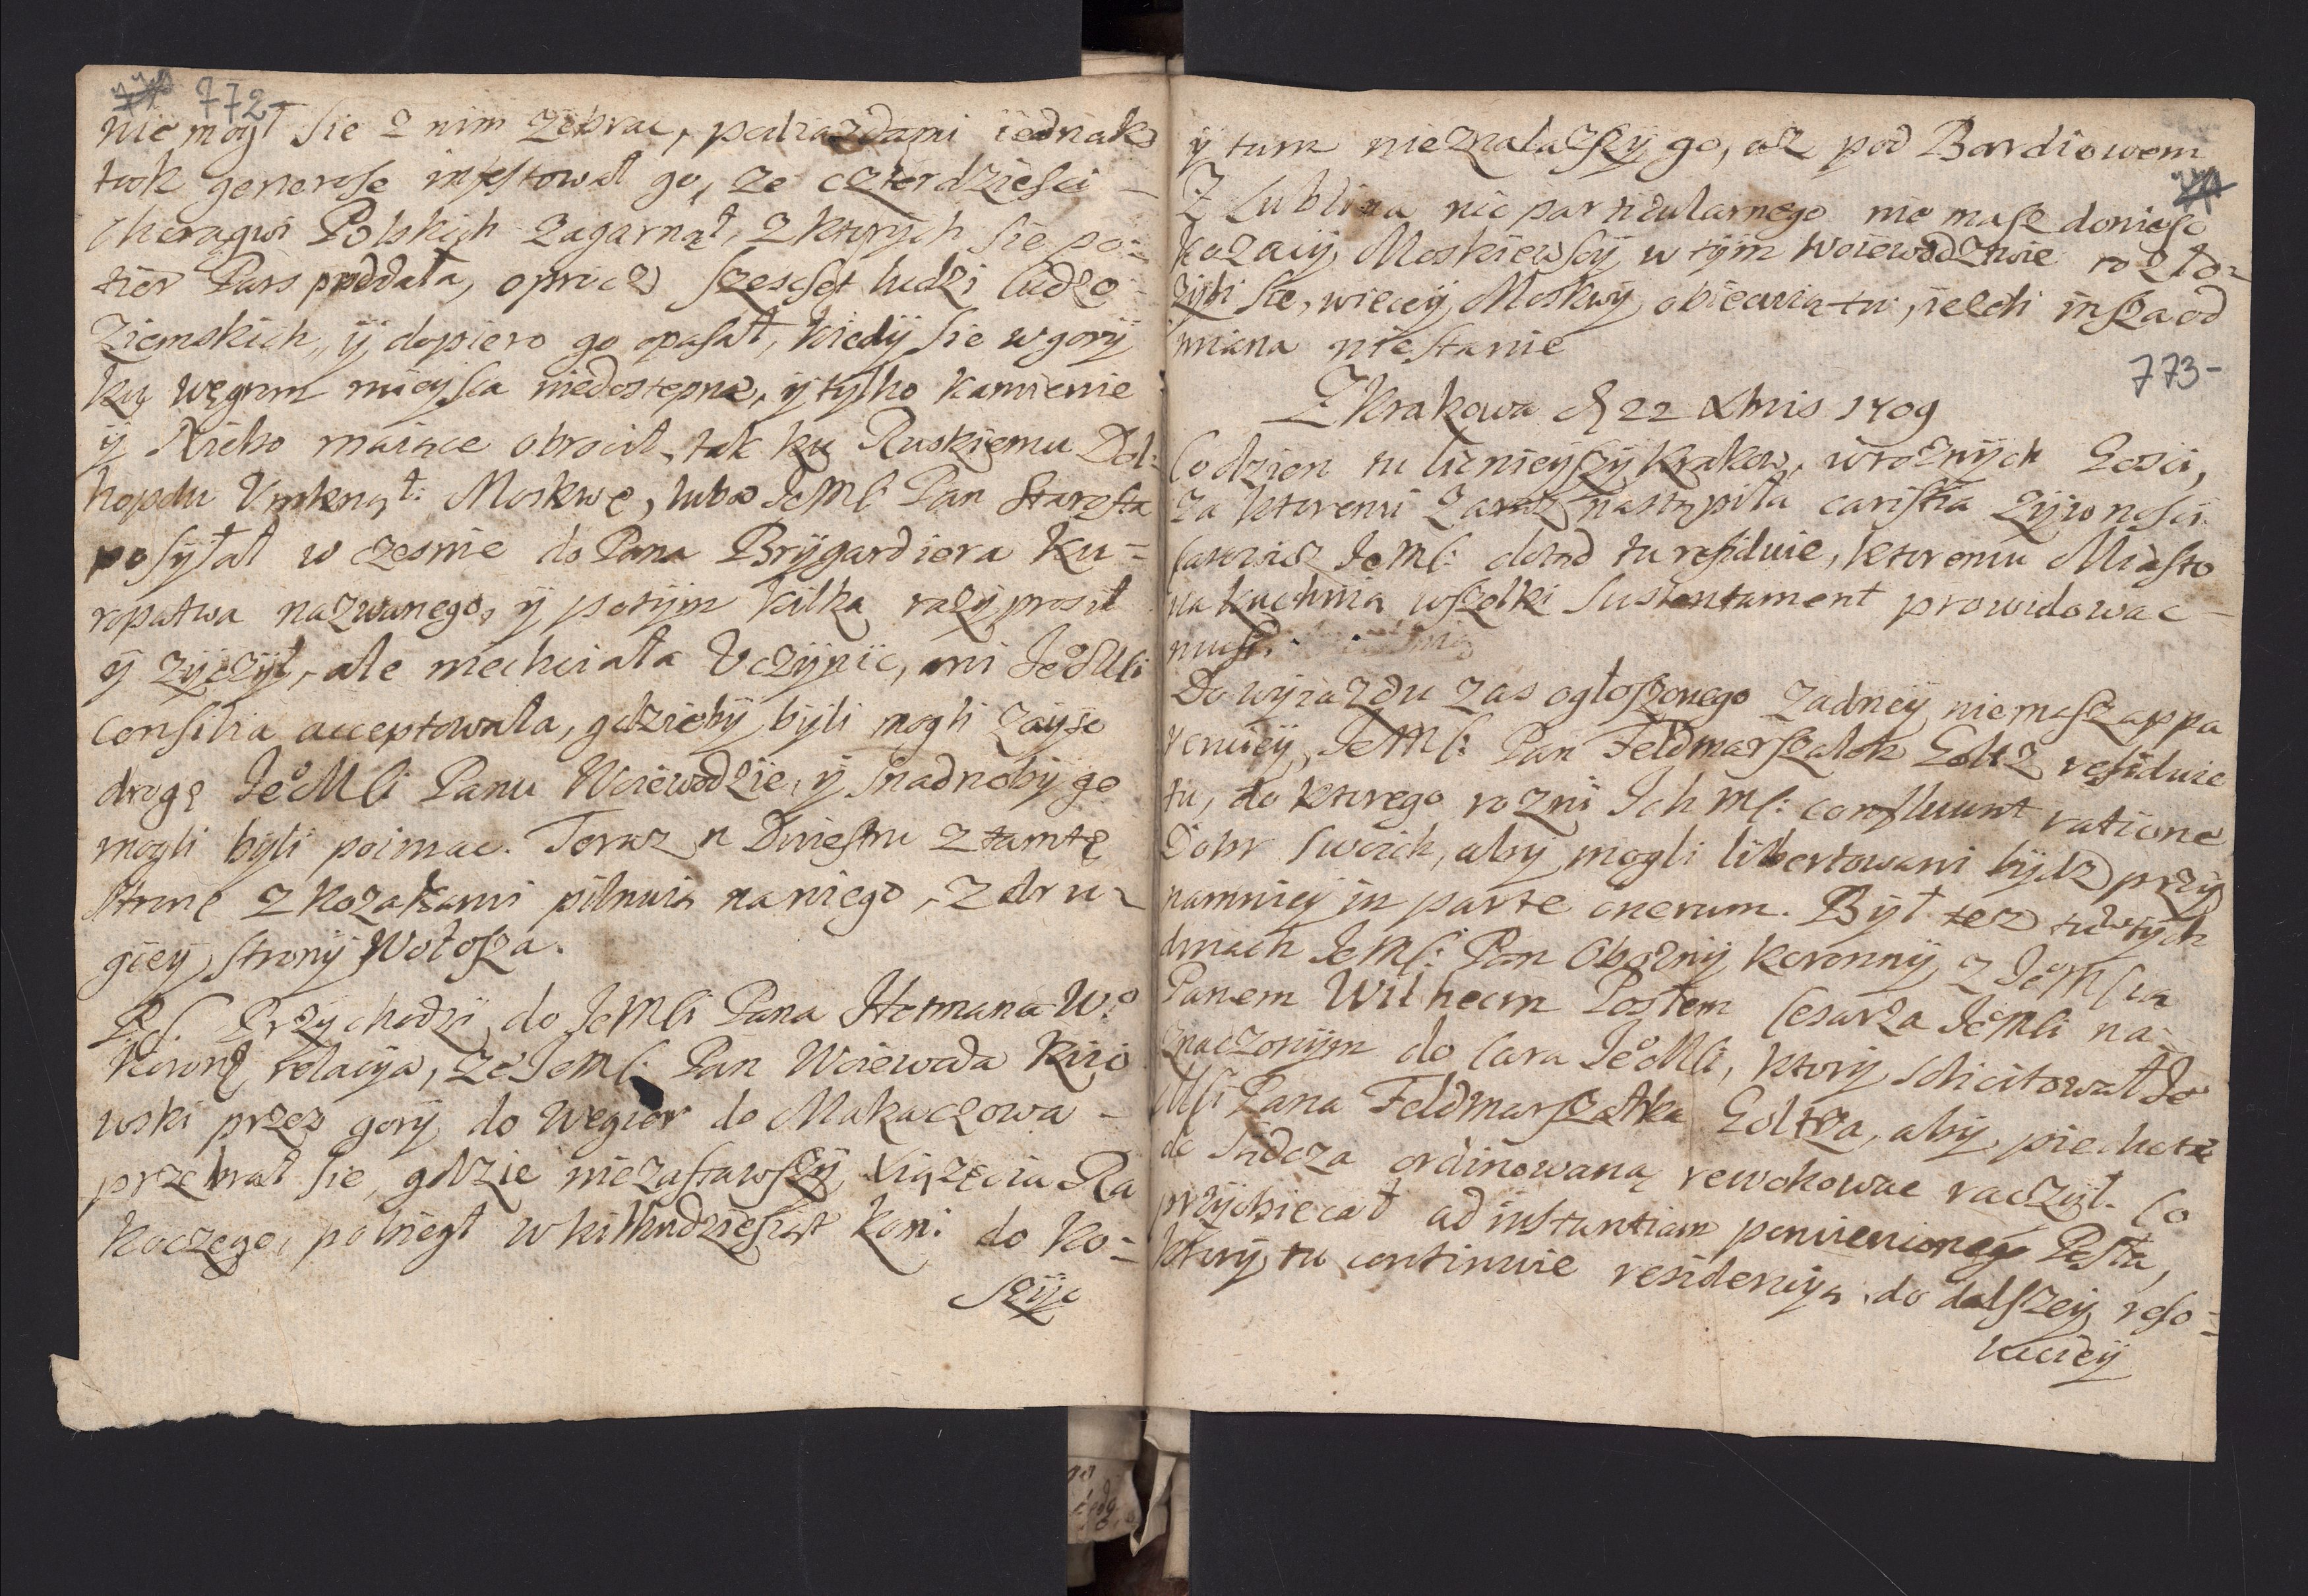 772
nie mogł sie o nim zebrac, podiazdami iednak
tak generose infestował go, ze czterdziesci
choragwi Polskich zagarnął, z ktorych sie po=
tier Pars poddała, oprocz szesciset ludzi Cudzo
ziemskich, ÿ dopiero go opasał, kiedÿ sie w gorÿ
ku węgrom mieÿsca niedostępne, ÿ tylko kamienie
ÿ maiące obrocił, tak ku Ruskiemu Dol=
hopolu Vmknął: Moskwę, lubo JeMſ Pan Starosta
posyłał w czesnie do Pana Brÿgardiera Ku=
ropatwa nazwanego, ÿ potÿm kilka razÿ prosił
ÿ zÿczÿł, ale niechciała Vczÿnic, ani JeoMſi
Consilia acceptowała, gdziebÿ bÿli mogli zaÿsc
drogę JeoMſi Panu Woiewodzie, ÿ snadnobÿ go
mogli bÿli poimac. Teraz u Dniestru z tamtę
stronę z kozakami pilnuią na niego, z dru=
gieÿ stronÿ Wołosza.
PS. Przÿchodzi do JeMſi Pana Hetmana Wo
Koronę relacÿa, ze JeMſ: Pan Woiewoda Kiio
wski przez gorÿ do Węgier do Mukaczowa
przebrał sie, gdzie niezastawszÿ Xiązęcia Ra
koczego, pobiegł w kilkudziesiąt koni do Ko=
szÿc
ÿ tam nieznalaszÿ go, az pod Bardiowem
Z Lublina nic particularnego nie masz donieſc
kozacÿ Moskiewscÿ w tÿm Woiewodztwie rozło=
zÿli sie, wiecÿ Moskwÿ obiecuią tu, iesli insza od
miana niestanie
773-
Z Krakowa d. 22 Xbris 1709
Co dzien tu licznieÿszÿ Krakow, w roznÿch Gosci,
za ktoremi zaraz nastąpiła caristia zÿwnosci.
Carowicz JeMſ: dotąd tu residuie, ktoremu Miasto
na kuchnią wszelki sustentament prowidowac
musi.
Do wÿiazdu zas ogłoszonego zadneÿ niemasz appa
rencieÿ, JeMſ: Pan Feldmarszałek Goltz residuie
tu, do ktorego rozni Ich Mſ: confluunt ratione
Dobr swoich, abÿ mogli libertowani bÿdz przÿ
namnieÿ in parte onerum. Bÿł tez tu w tÿch
dniach JeMſ: Pan Oboznÿ Koronnÿ, z JeoMſcią
Panem Wilhecm Posłem Cesarza JeoMſi na=
znaczonÿm do Cara JeoMſi, ktorÿ solicitował Jeo
Mſi Pana Feldmarszałka Goltza, abÿ piechotę
do Sądcza ordinowaną rewokowac raczÿł. Co
przÿobiecał ad instantiam pomienionego Posła,
ktorÿ tu continuie residencÿą, do dalszeÿ reso=
lucieÿ